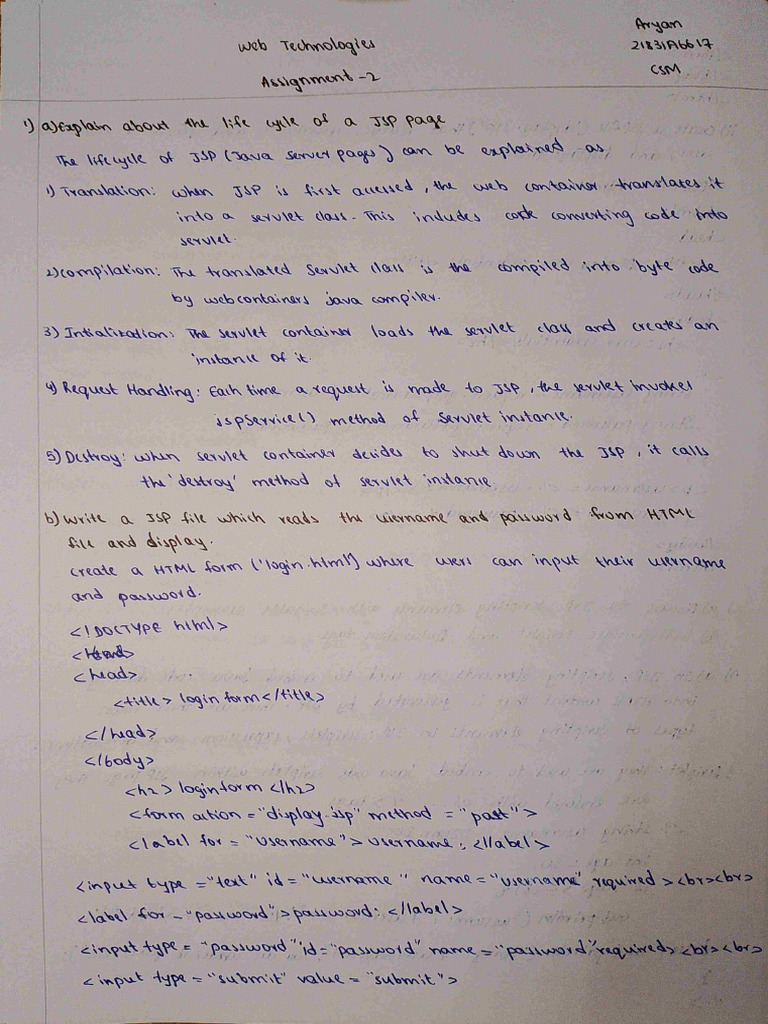 Aryan
Web Technologies
21831A6617
Assignment-2
CSM
1) a) Explain about the life cycle of a JSP page
The lifecycle of JSP (Java Server pages) can be explained as
1) Translation: when JSP is first accessed, the web container translates it
into a servlet class. This includes converting code into
servlet.
2) compilation: The translated Servlet class is the compiled into byte code
by webcontainers java compiler.
3) Intialization: The servlet container loads the servlet class and creates an
instance of it.
4) Request Handling: Each time a request is made to JSP, the servlet invokes
jspService() method of servlet instance.
5) Destroy: when servlet container decides to shut down the JSP, it calls
the 'destroy' method of servlet instance.
b) Write a JSP file which reads the username and password from HTML
file and display.
create a HTML form ('login.html') where users can input their username
and password.
<!DOCTYPE html>
<head>
<title> login form </title>
</head>
</body>
<h2> loginform </h2>
<form action = "display.jsp" method = "post">
<label for = "username"> username: </label>
<input type = "text" id = "username" name = "username" required ><br><br>
<label for - "password"> password: </label>
<input type = "password" id = "password" name = "password" required> <br><br>
<input type = "submit" value = "submit">